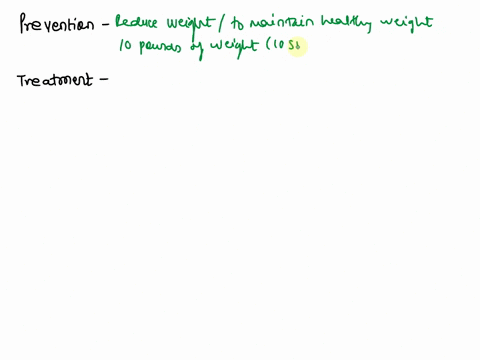 Prevention - Reduce weight / to maintain healthy weight
10 pounds of weight (10 
Treatment -